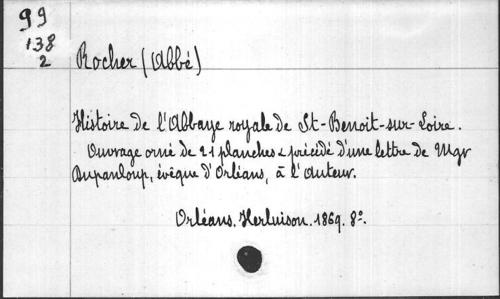 99
138
2
Rocher (Abbé)
Histoire de l'Abbaye royale de St-Benoit-sur-Loire.
Ouvrage orné de 21 planches & précédé d'une lettre de Mgr
Dupanloup, évêque d'Orléans, à l'auteur.
Orléans. Herluison. 1869. 8º.